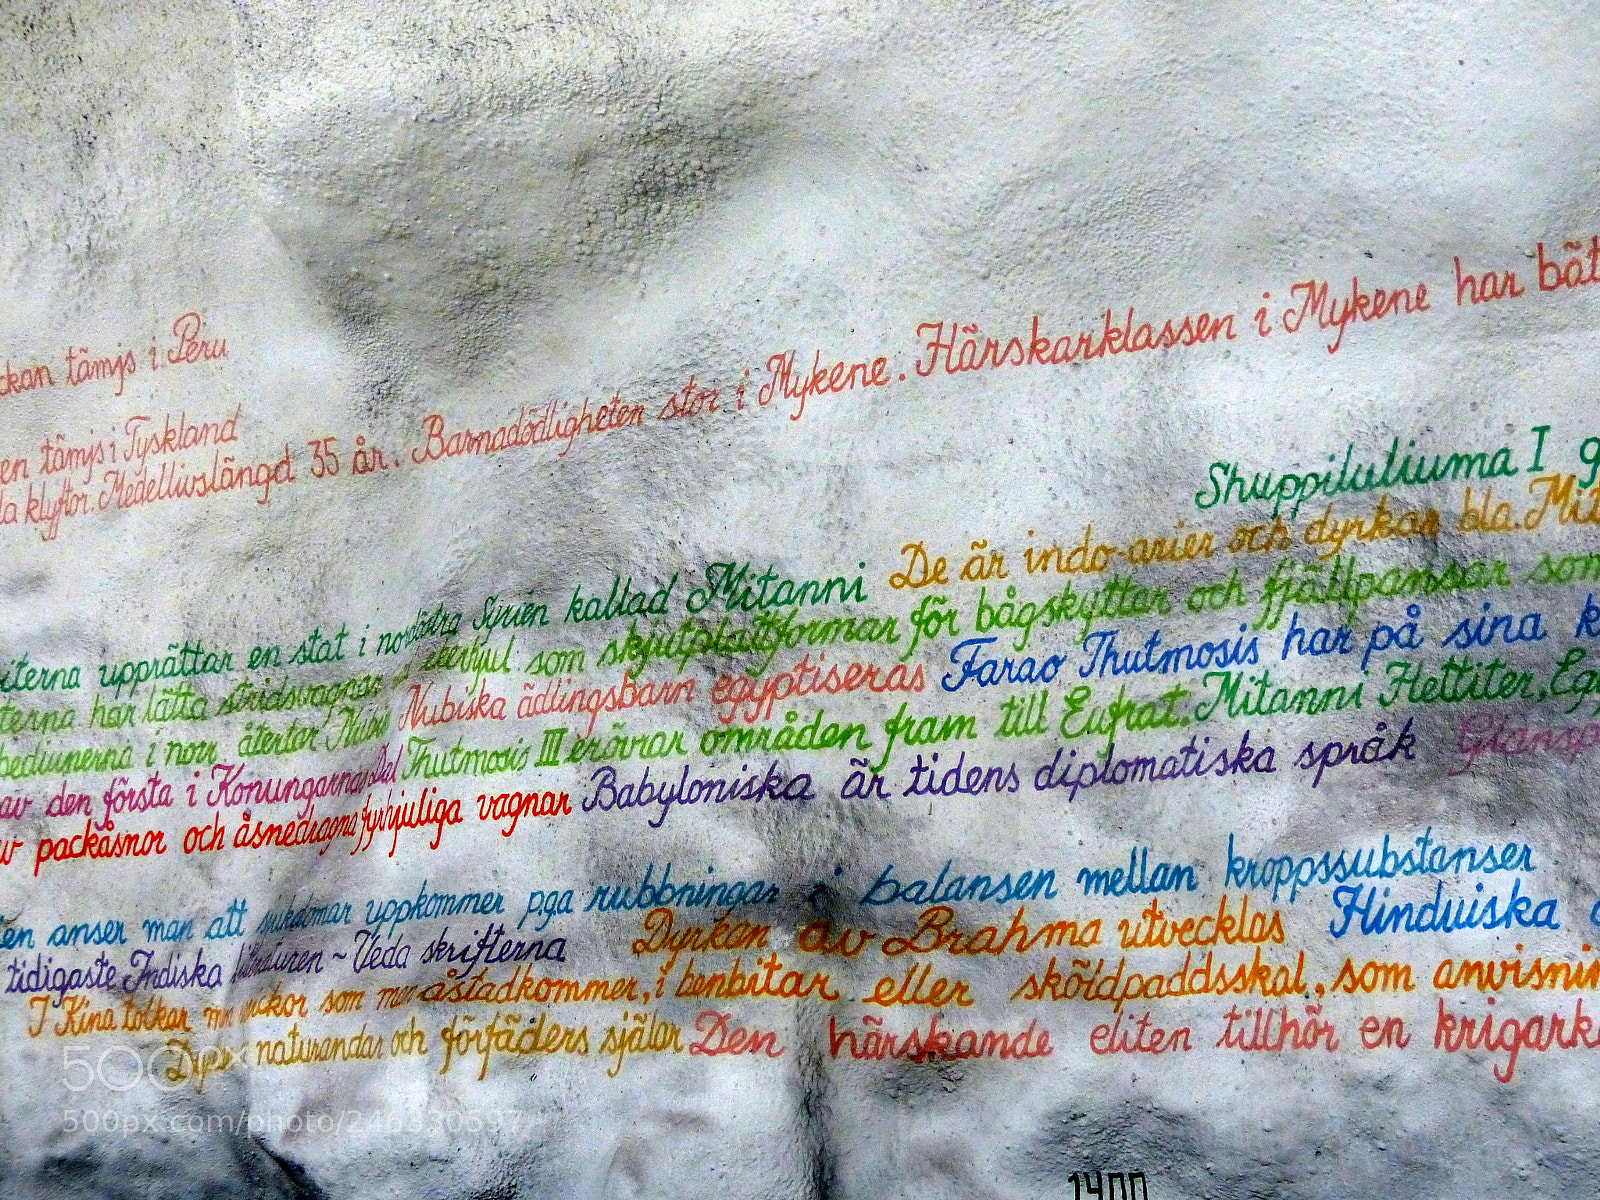 ckan tämjs i Peru
en tämjs i Tyskland
la klyftor. Medellivslängd 35 år. Barnadödligheten stor i Mykene. Härskarklassen i Mykene har bät
Shuppiluliuma I g
iterna upprättar en stat i nordöstra Syrien kallad Mitanni De är indo-arier och dyrkar bla. Mit
terna har lätta stridsvagnar som skjutplattformar för bågskyttar och fjällpansar som
beduinerna i norr, återtar Nubiska ädlingsbarn egyptiseras Farao Thutmosis har på sina k
av den första i Konungarnas Dal Thutmosis III erövrar områden fram till Eufrat. Mitanni Hettiter, Egy
v packåsnor och åsnedragna fyrhjuliga vagnar Babyloniska är tidens diplomatiska språk Glansp
en anser man att sjukdomar uppkommer p.ga rubbningar i balansen mellan kroppssubstanser
tidigaste Indiska litteraturen ~ Veda skrifterna Dyrkan av Brahma utvecklas Hinduiska
I Kina tolkar man sprickor som man åstadkommer, i benbitar eller sköldpaddsskal, som anvisnin
naturandar och förfäders själar Den härskande eliten tillhör en krigark
500px
500px.com/photo/246330597
1400